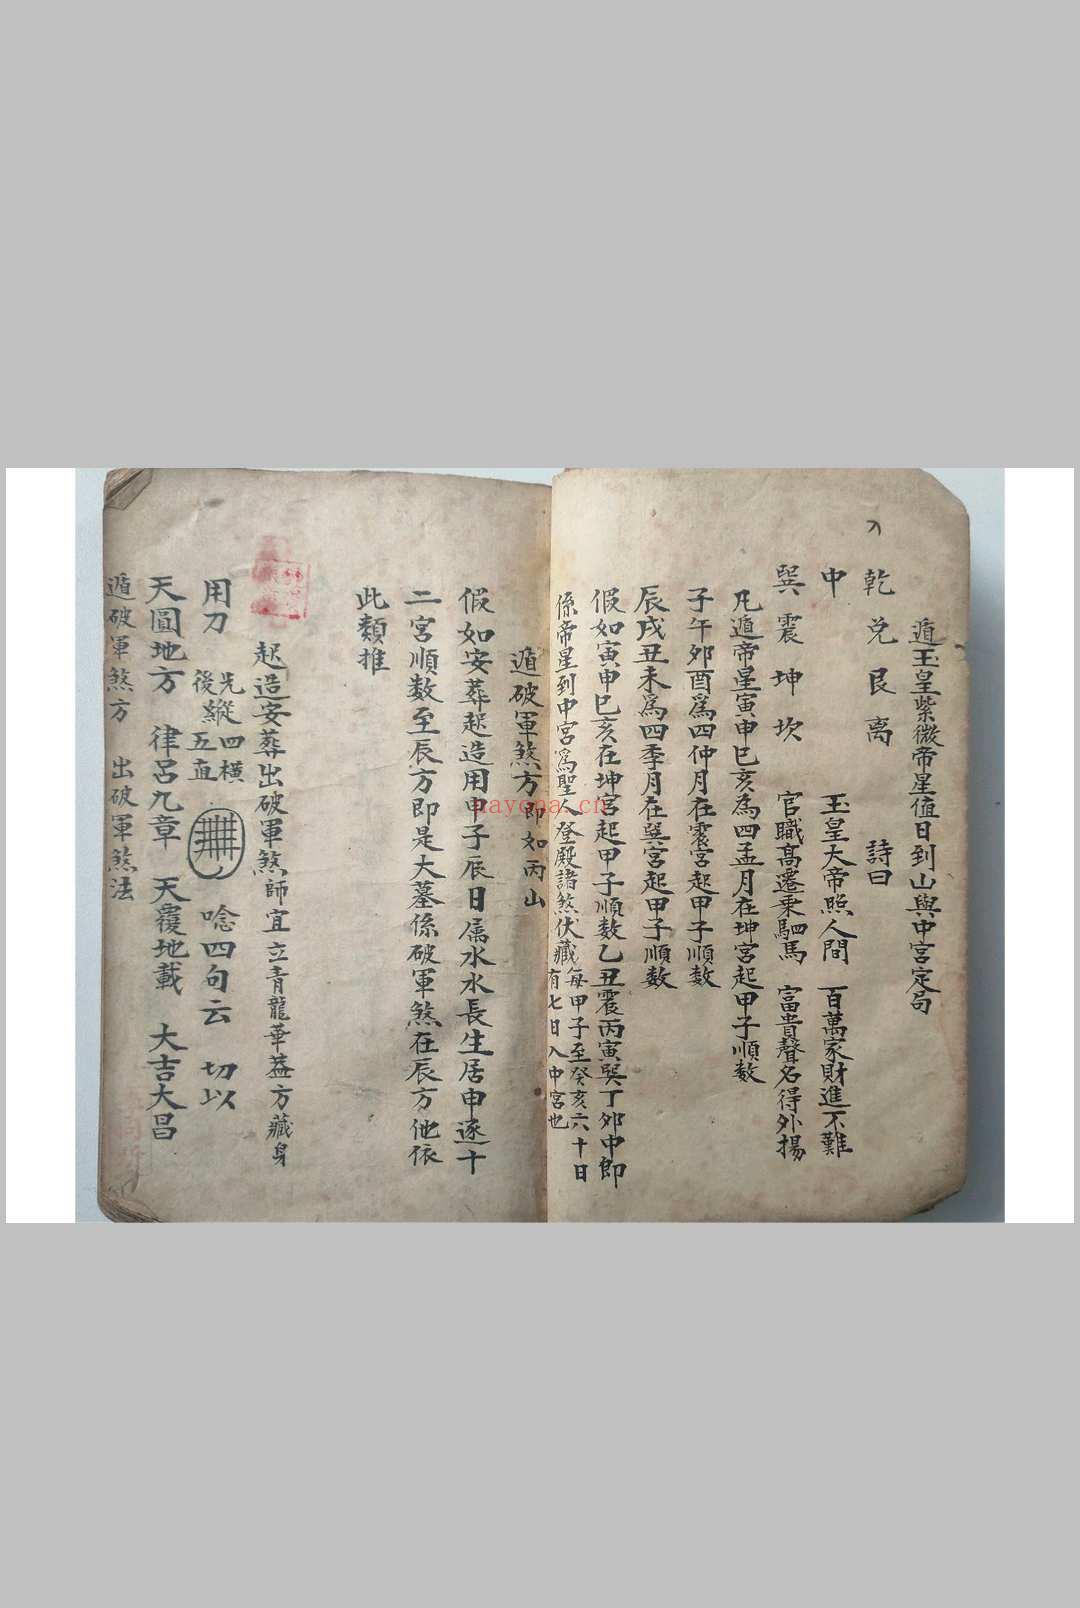 遁玉皇紫微帝星值日到山與中宮定局
乾兌艮离 詩曰
中 玉皇大帝照人間 百萬家財進不難
巽震坤坎 官職高遷乘駟馬 富貴聲名得外揚
凡遁帝星寅申巳亥為四孟月在坤宮起甲子順数
子午夘酉爲四仲月在震宮起甲子順数
辰戌丑未爲四季月在巽宮起甲子順数
假如寅申巳亥在坤宮起甲子順数乙丑震丙寅巽丁夘中即
係帝星到中宮爲聖人登殿諸煞伏藏 每甲子至癸亥六十日
有七日入中宮也
遁破軍煞方即如丙山
假如安葬起造用甲子辰日属水水長生居申逐十
二宮順数至辰方即是大墓係破軍煞在辰方他依
此類推
起造安葬出破軍煞師宜立青龍華蓋方藏身
用刀 先四橫
後縱五直
唸四句云 切以
天圓地方 律呂九章 天覆地載 大吉大昌
遁破軍煞方 出破軍煞法
nayona.cn